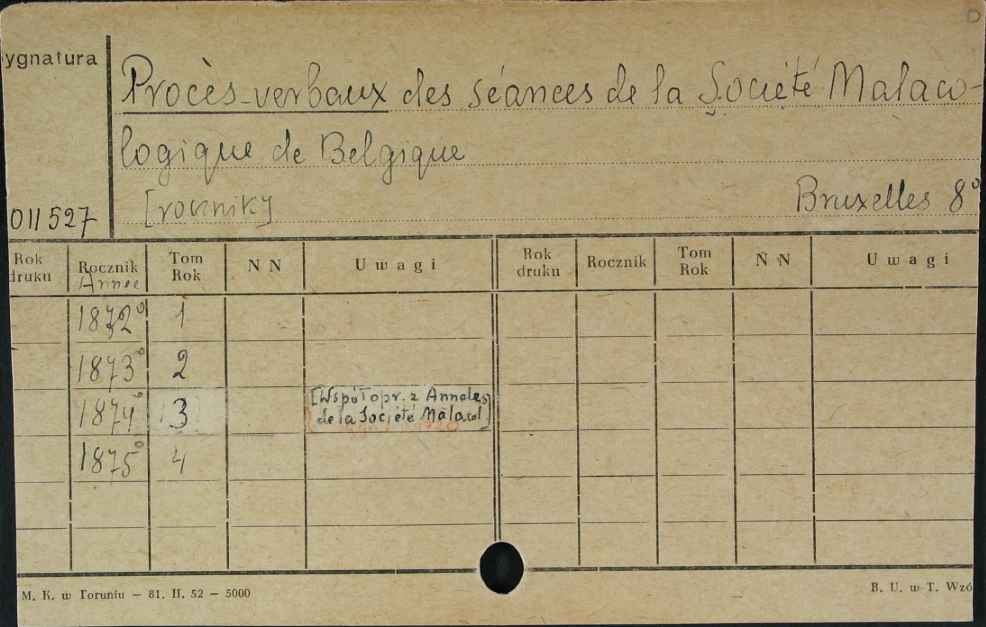 ygnatura
Procès-verbaux des séances de la Société Malaco-
logique de Belgique
[rocznik]
Bruxelles 8°
011527
Rok druku Rocznik Année Tom Rok N N Uwagi Rok druku Rocznik Tom Rok N N Uwagi
1872° 1
1873° 2
1874° 3 [Współopr. z Annales
de la Société Malacol]
1875° 4
M. K. w Toruniu — 81. II. 52 — 5000
B. U. w T. Wzó